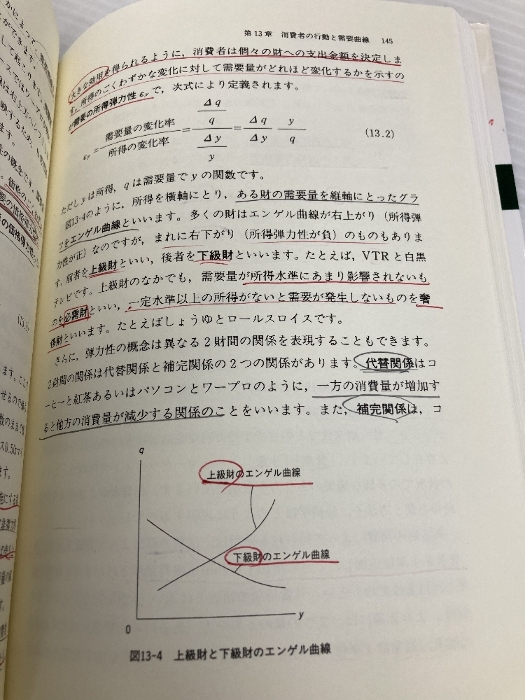 第13章 消費者の行動と需要曲線 145
大きな効用を得られるように，消費者は個々の財への支出金額を決定しま
す。所得のごくわずかな変化に対して需要量がどれほど変化するかを示すの
が需要の所得弾力性 εyで，次式により定義されます。
εy = 需要量の変化率 / 所得の変化率 = (Δq/q) / (Δy/y) = Δq/Δy y/q (13.2)
ただし y は所得，q は需要量で y の関数です。
図13-4のように，所得を横軸にとり，ある財の需要量を縦軸にとったグラ
フをエンゲル曲線といいます。多くの財はエンゲル曲線が右上がり（所得弾
力性が正）なのですが，まれに右下がり（所得弾力性が負）のものもありま
す。前者を上級財といい，後者を下級財といいます。たとえば，VTRと白黒
テレビです。上級財のなかでも，需要量が所得水準にあまり影響されないも
のを必需財といい，一定水準以上の所得がないと需要が発生しないものを奢
侈財といいます。たとえばしょうゆとロールスロイスです。
さらに，弾力性の概念は異なる2財間の関係を表現することもできます。
2財間の関係は代替関係と補完関係の2つの関係があります。代替関係はコ
ーヒーと紅茶あるいはパソコンとワープロのように，一方の消費量が増加す
ると他方の消費量が減少する関係のことをいいます。また，補完関係は，コ
q
上級財のエンゲル曲線
下級財のエンゲル曲線
0
y
図13-4 上級財と下級財のエンゲル曲線